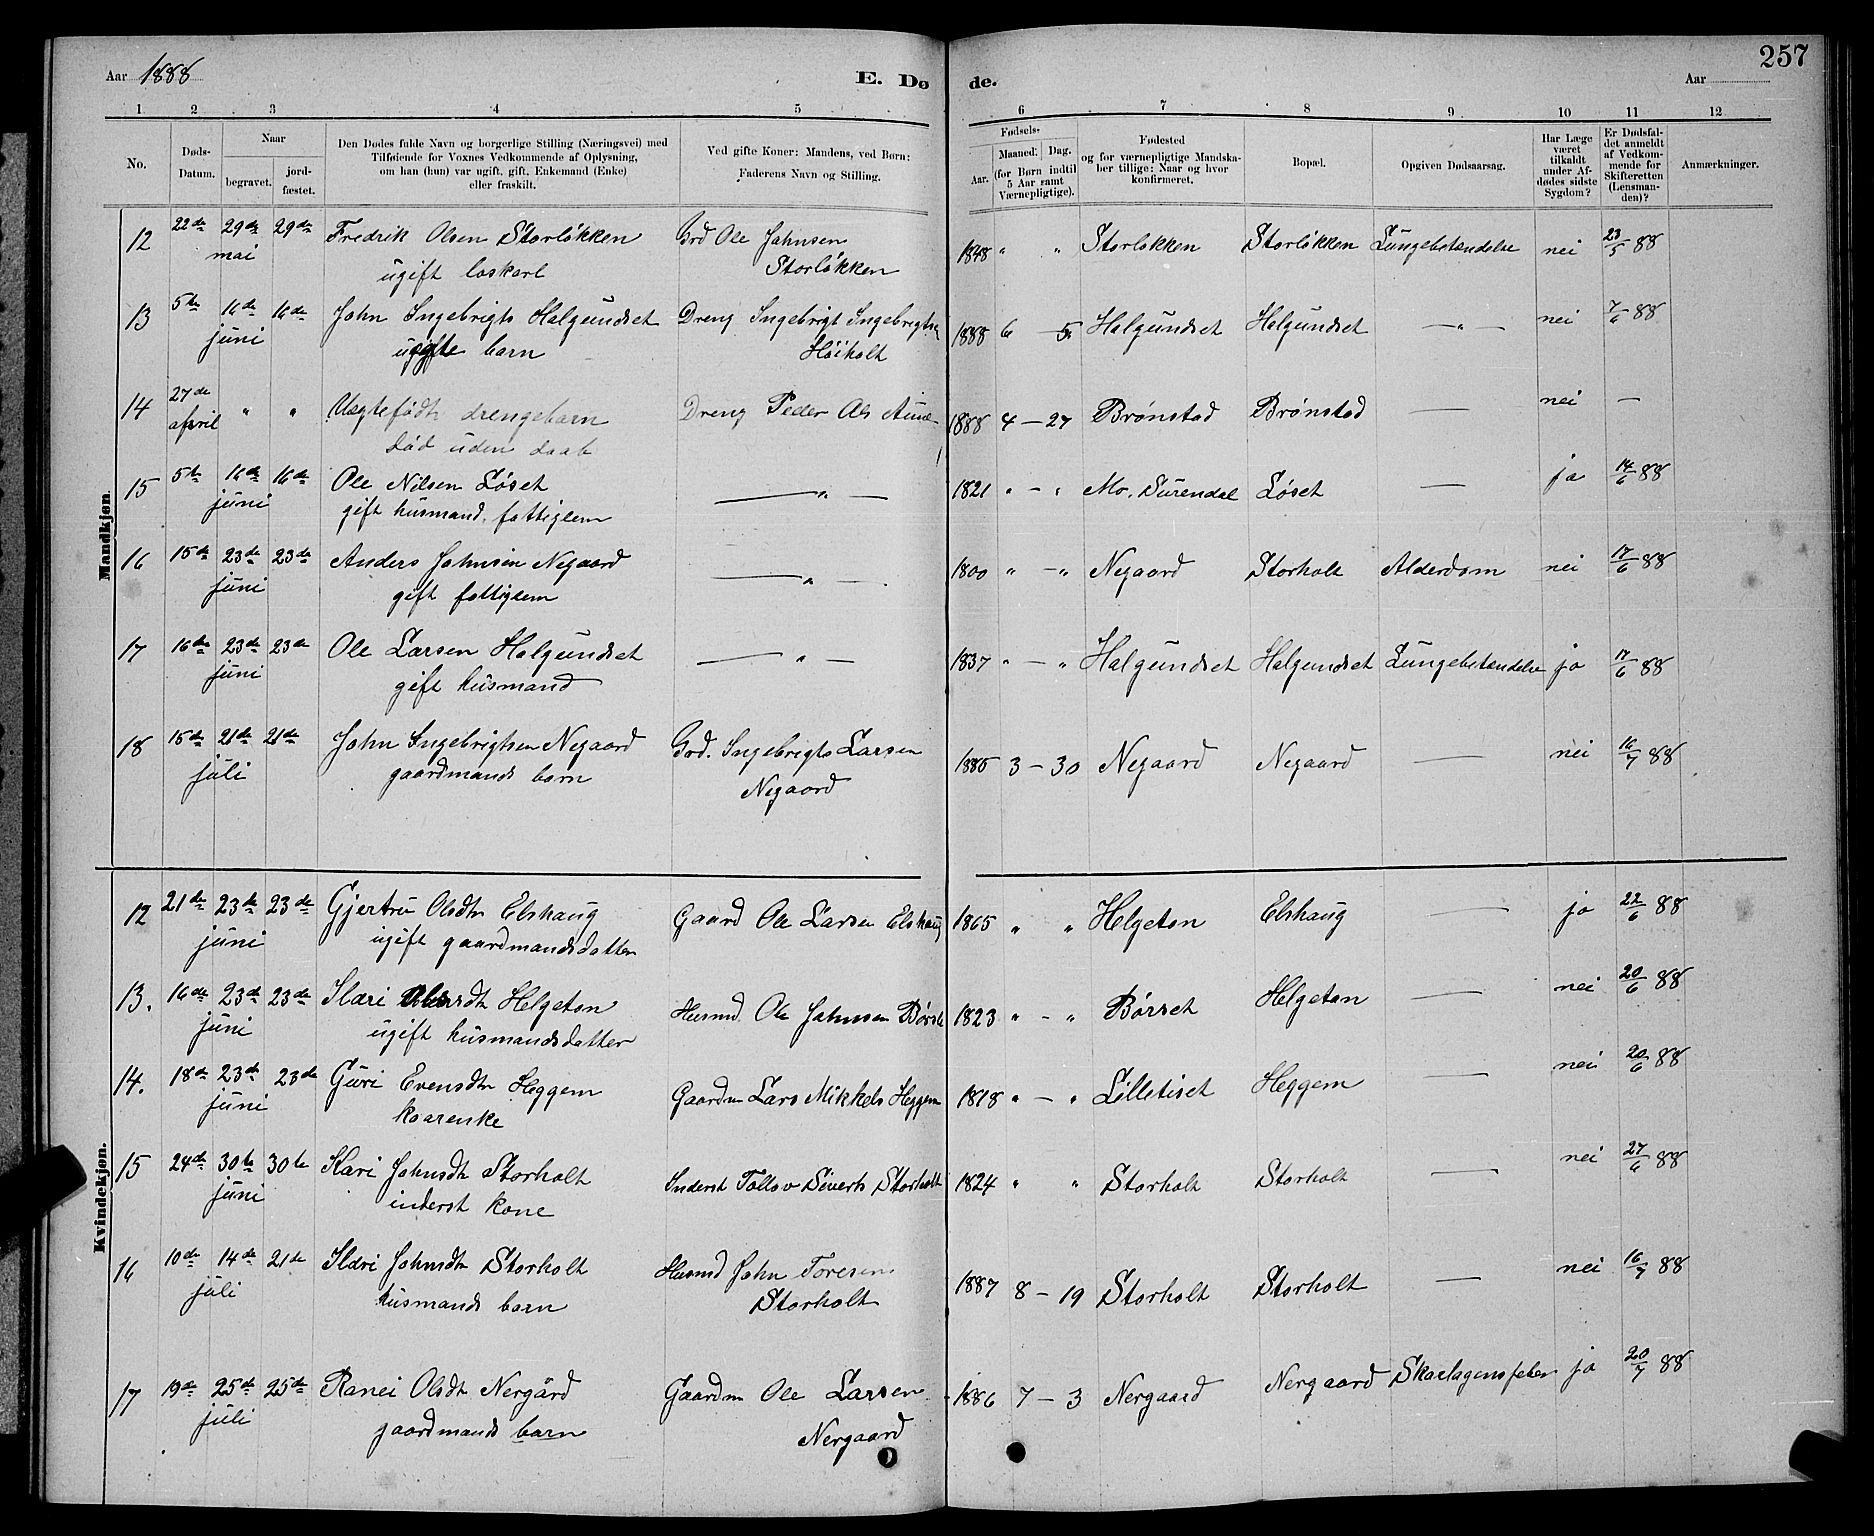 257
Aar 1888
E. Dø
de.
Aar
1 2 3 4 5 6 7 8 9 10 11 12
No.
Døds-Datum.
Naar
begravet.
jordfæstet.
Den Dødes fulde Navn og borgerlige Stilling (Næringsvei) med
Tilføiende for Voxnes Vedkommende af Oplysning,
om han (hun) var ugift, gift, Enkemand (Enke)
eller fraskilt.
Ved gifte Koner: Mandens, ved Børn:
Faderens Navn og Stilling.
Fødsels-
Aar.
Maaned. Dag.
(for Børn indtil
5 Aar samt
Værnepligtige).
Fødested
og for værnepligtige Mandska-
ber tillige: Naar og hvor
konfirmeret.
Bopæl.
Opgiven Dødsaarsag.
Har Læge
været
tilkaldt
under Af-
dødes sidste
Sygdom?
Er Dødsfal-
det anmeldt
af Vedkom-
mende for
Skifteretten
(Lensman-
den)?
Anmærkninger.
Mandkjøn.
12 22de 29de 29de Fredrik Olsen Storløkken Brd Ole Johnsen 1848 " " Storløkken Storløkken Lungebetændelse nei 23/5 88
mai ugift løskarl Storløkken
13 5te 16de 16de John Ingebrigts Halgundset Dreng Ingebrigt Ingebrigtsen 1888 6 — 5 Halgundset Halgundset — " — nei 7/6 88
juni barn Høiholt
14 27de " " Uægtefødt drengebarn Dreng Peder Ols 1888 4 — 27 Brønstad Brønstad — nei —
april død uden daab
15 5te 16de 16de Ole Nilsen Løset — " — 1821 " — " Mo. Surendal Løset — ja 14/6 88
juni gift husmand. fattiglem
16 15de 23de 23de Anders Johnsen Negaard — " — 1800 " — " Negaard Storholt Alderdom nei 17/6 88
juni gift fattiglem
17 16de 23de 23de Ole Larsen Halgundset — " — 1837 " — " Halgundset Halgundset Lungebetændelse ja 17/6 88
juni gift husmand
18 15de 21de 21de John Ingebrigtsen Negaard Grd. Ingebrigts Larsen 1885 3 — 30 Negaard Negaard — nei 16/7 88
juli gaardmands barn Negaard
Kvindekjøn.
12 21de 23de 23de Gjertru Olsdtr Elshaug Gaard Ole Larsen Elshaug 1865 " " Helgeton Elshaug — ja 22/6 88
juni ugift gaardmandsdatter
13. 16de 23de 23de Ildri Olsdt Helgeton Husmd. Ole Johnsen 1823 " — " Børset Helgeton — nei 20/6 88
juni ugift husmandsdatter
14. 18de 23de 23de Guri Evensdtr Heggem Gaardm Lars Mikkels Heggem 1818 " — " Lilletiset Heggem — nei 20/6 88
juni kaarenke
15 24de 30te 30te Kari Johnsdt Storholt Inderst Tollov Siverts Storholt 1824 " " Storholt Storholt — nei 27/6 88
juni inderst kone
16 10de 14de 21de Ildri Johnsdtr Storholt Husmd John Toresen 1887 8 — 19 Storholt Storholt — nei 16/7 88
juli husmands barn Storholt
17 19de 25de 25de Ranei Olsdt Nergård Gaardm Ole Larsen 1886 7 — 3 Nergaard Nergaard Skarlagensfeber ja 20/7 88
juli gaardmands barn Nergaard